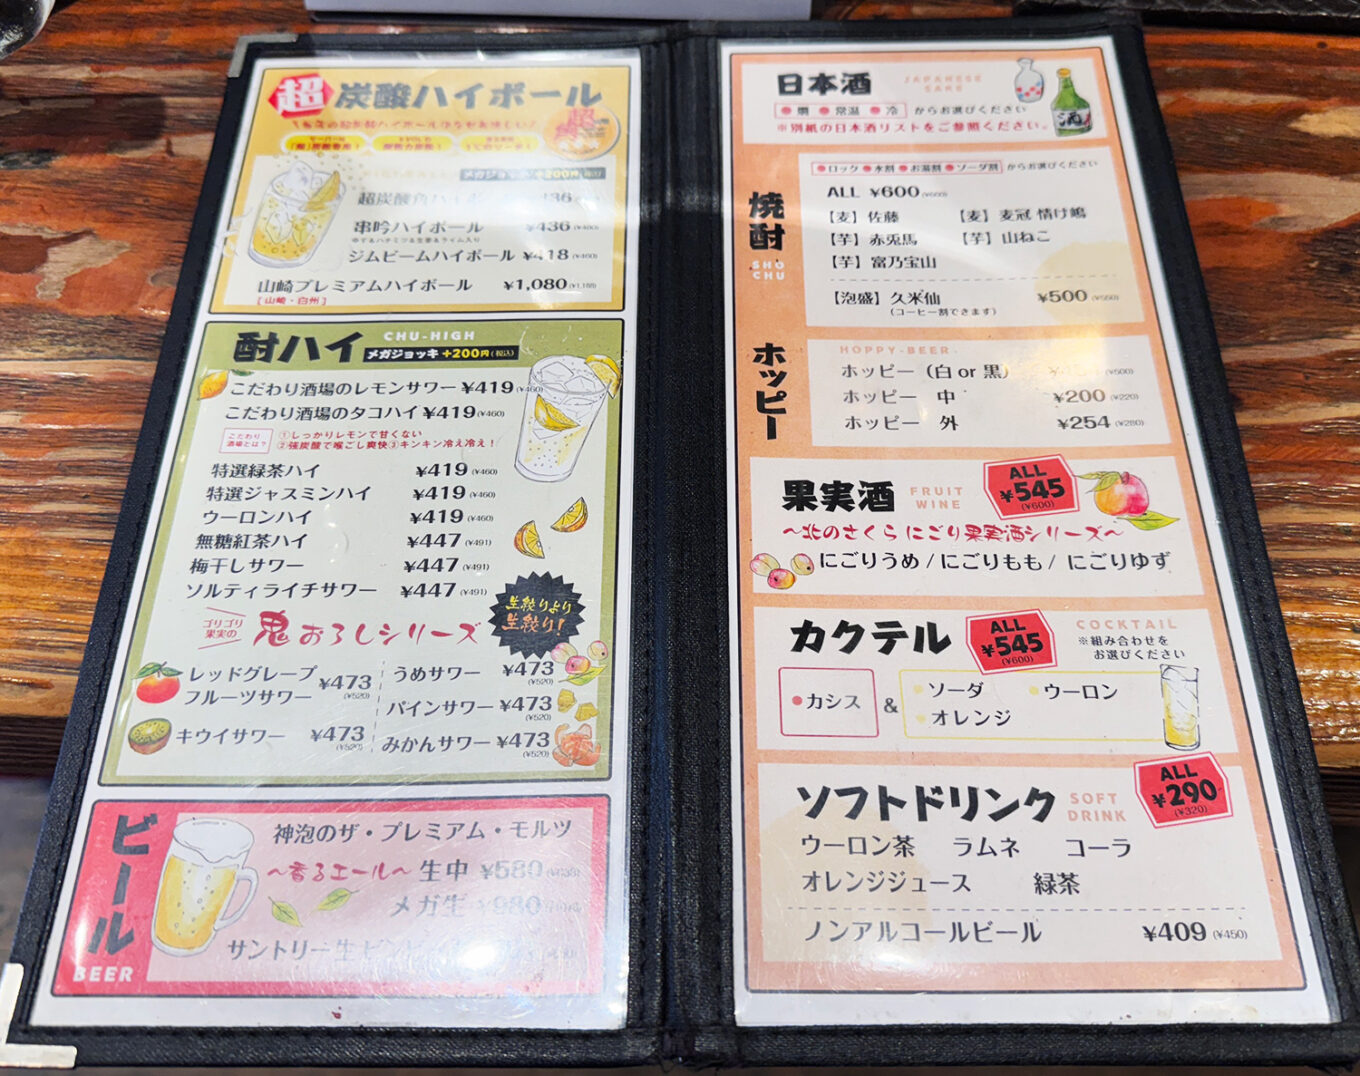 超 炭酸ハイポール
メガジョッキ +200円(税込)
超炭酸角ハイボ
串吟ハイボール ¥436 (¥480)
ゆず&ハチミツ&生姜&ライム入り
ジムビームハイボール ¥418 (¥460)
山崎プレミアムハイボール ¥1,080 (¥1,188)
[山崎・白州]
酎ハイ CHU-HIGH
メガジョッキ +200円(税込)
こだわり酒場のレモンサワー ¥419 (¥460)
こだわり酒場のタコハイ ¥419 (¥460)
こだわり酒場とは? ①しっかりレモンで甘くない
②強炭酸で喉ごし爽快③キンキン冷え冷え!
特選緑茶ハイ ¥419 (¥460)
特選ジャスミンハイ ¥419 (¥460)
ウーロンハイ ¥419 (¥460)
無糖紅茶ハイ ¥447 (¥491)
梅干しサワー ¥447 (¥491)
ソルティライチサワー ¥447 (¥491)
生絞りより
生絞り!
ゴリゴリ果実の 鬼おろしシリーズ
レッドグレープ
フルーツサワー ¥473 (¥520)
キウイサワー ¥473 (¥520)
うめサワー ¥473 (¥520)
パインサワー ¥473 (¥520)
みかんサワー ¥473 (¥520)
ビール
BEER
神泡のザ・プレミアム・モルツ
〜香るエール〜 生中 ¥580
メガ生 ¥980
サントリー生ビール
日本酒 JAPANESE SAKE
●燗 ●常温 ●冷 からお選びください
※別紙の日本酒リストをご参照ください。
焼酎
SHO CHU
●ロック ●水割 ●お湯割 ●ソーダ割 からお選びください
ALL ¥600
【麦】佐藤 【麦】麦冠 情け嶋
【芋】赤兎馬 【芋】山ねこ
【芋】富乃宝山
【泡盛】久米仙 ¥500 (¥550)
(コーヒー割できます)
ホッピー
HOPPY-BEER
ホッピー(白 or 黒) (¥500)
ホッピー 中 ¥200 (¥220)
ホッピー 外 ¥254 (¥280)
果実酒 FRUIT WINE
ALL ¥545 (¥600)
〜北のさくら にごり果実酒シリーズ〜
にごりうめ / にごりもも / にごりゆず
カクテル
ALL ¥545 (¥600)
COCKTAIL
※組み合わせを
お選びください
●カシス & ●ソーダ ●ウーロン
●オレンジ
ソフトドリンク SOFT DRINK
ALL ¥290 (¥320)
ウーロン茶 ラムネ コーラ
オレンジジュース 緑茶
ノンアルコールビール ¥409 (¥450)